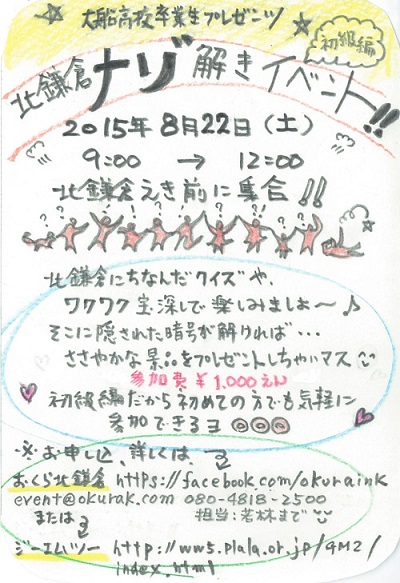 大船高校卒業生プレゼンツ
初級編
北鎌倉ナゾ解きイベント!!
2015年8月22日(土)
9:00 → 12:00
北鎌倉えき前に集合!!
? ? ? ? ? ? ? ?
北鎌倉にちなんだクイズや、
ワクワク宝探しで楽しみましょ〜♪
そこに隠された暗号が解ければ・・・
ささやかな景品をプレゼントしちゃいマス
参加費¥1,000えん
初級編だから初めての方でも気軽に
参加できるヨ ◎◎◎
※お申し込、詳しくは、
おくら北鎌倉 https://facebook.com/okuraink
event@okurak.com 080-4818-2500
または 担当:若林まで
ジーエムツー http://www5.plala.or.jp/GM2/
index.html